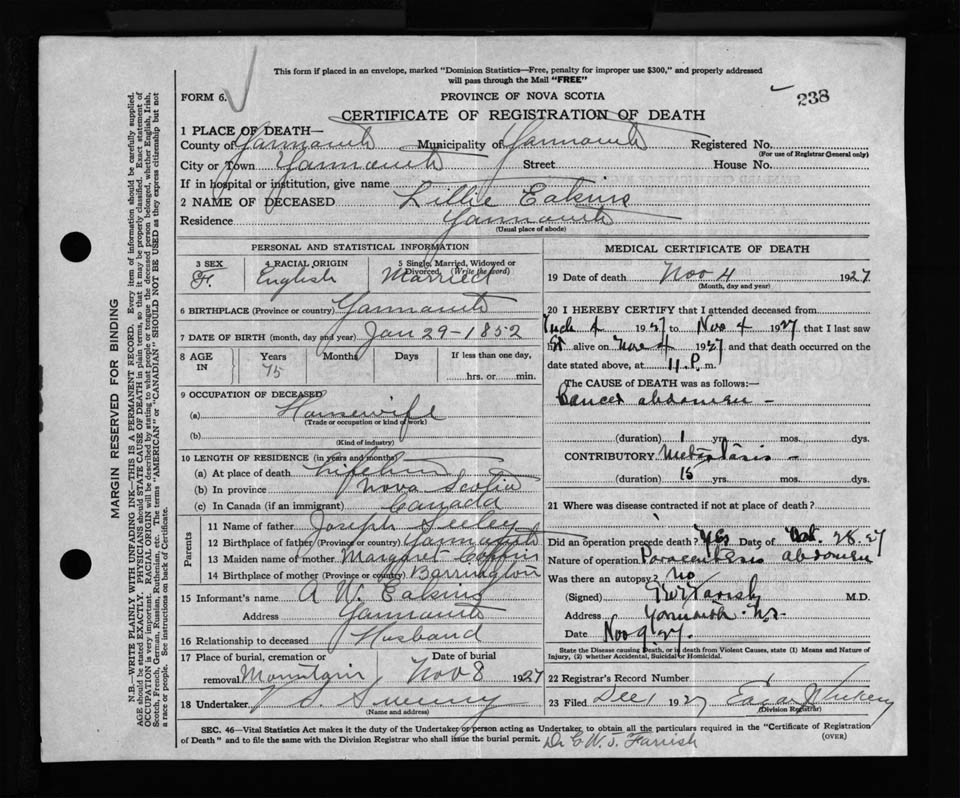 This form if placed in an envelope, marked "Dominion Statistics—Free, penalty for improper use $300," and properly addressed
will pass through the Mail "FREE"
FORM 6.
PROVINCE OF NOVA SCOTIA
238
CERTIFICATE OF REGISTRATION OF DEATH
1 PLACE OF DEATH—
County of Yarmouth Municipality of Yarmouth Registered No.
(For use of Registrar General only)
City or Town Yarmouth Street House No.
If in hospital or institution, give name
2 NAME OF DECEASED Lillie Eakins
Residence Yarmouth
(Usual place of abode)
PERSONAL AND STATISTICAL INFORMATION
3 SEX 4 RACIAL ORIGIN 5 Single, Married, Widowed or
Divorced (Write the word)
F. English Married
6 BIRTHPLACE (Province or country) Yarmouth
7 DATE OF BIRTH (month, day and year) Jan 29-1852
8 AGE IN Years Months Days If less than one day,
75 hrs. or min.
9 OCCUPATION OF DECEASED
(a) Housewife
(Trade or occupation or kind of work)
(b)
(Kind of industry)
10 LENGTH OF RESIDENCE (in years and months)
(a) At place of death Lifetime
(b) In province Nova Scotia
(c) In Canada (if an immigrant) Canada
Parents
11 Name of father Joseph Seeley
12 Birthplace of father (Province or country) Yarmouth
13 Maiden name of mother Margaret
14 Birthplace of mother (Province or country) Barrington
15 Informant's name A W. Eakins
Address Yarmouth
16 Relationship to deceased Husband
17 Place of burial, cremation or Date of burial
removal Mountain Nov 8 1927
18 Undertaker V S Sweeny
(Name and address)
MEDICAL CERTIFICATE OF DEATH
19 Date of death Nov 4 1927
(Month, day and year)
20 I HEREBY CERTIFY that I attended deceased from
4 1927 to Nov 4 1927 that I last saw
h alive on Nov 4 1927 and that death occurred on
date stated above, at 11. P. m.
The CAUSE of DEATH was as follows:—
Cancer abdomen —
(duration) 1 yrs. mos. dys.
CONTRIBUTORY Metastasis —
(duration) 15 yrs. mos. dys.
21 Where was disease contracted if not at place of death?
Did an operation precede death? Yes Date of Oct. 28.27
Nature of operation Paracentesis abdomen
Was there an autopsy? No
(Signed) M.D.
Address Yarmouth N.S.
Date Nov 9. 27.
State the Disease causing Death, or in death from Violent Causes, state (1) Means and Nature of
Injury, (2) whether Accidental, Suicidal or Homicidal.
22 Registrar's Record Number
23 Filed Dec 1 1927
(Division Registrar)
SEC. 46—Vital Statistics Act makes it the duty of the Undertaker or person acting as Undertaker, to obtain all the particulars required in the "Certificate of Registration
of Death" and to file the same with the Division Registrar who shall issue the burial permit.
(OVER)
Dr E W. J. Farrish
MARGIN RESERVED FOR BINDING
N.B.—WRITE PLAINLY WITH UNFADING INK—THIS IS A PERMANENT RECORD. Every item of information should be carefully supplied.
AGE should be stated EXACTLY. PHYSICIANS should STATE CAUSE OF DEATH in plain terms, so that it may be properly classified. Exact statement of
OCCUPATION is very important. RACIAL ORIGIN will be described by stating to what people or tongue the deceased person belonged, whether English, Irish,
Scotch, French, German, Russian, Ruthenian, etc. The terms "AMERICAN" or "CANADIAN" SHOULD NOT BE USED as they express citizenship but not
a race or people. See instructions on back of Certificate.